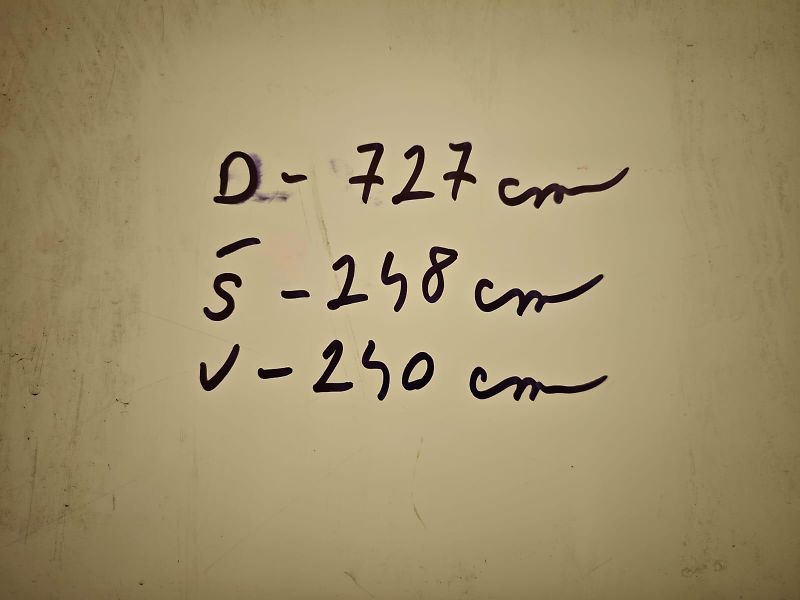 D - 727 cm
Š - 248 cm
V - 240 cm